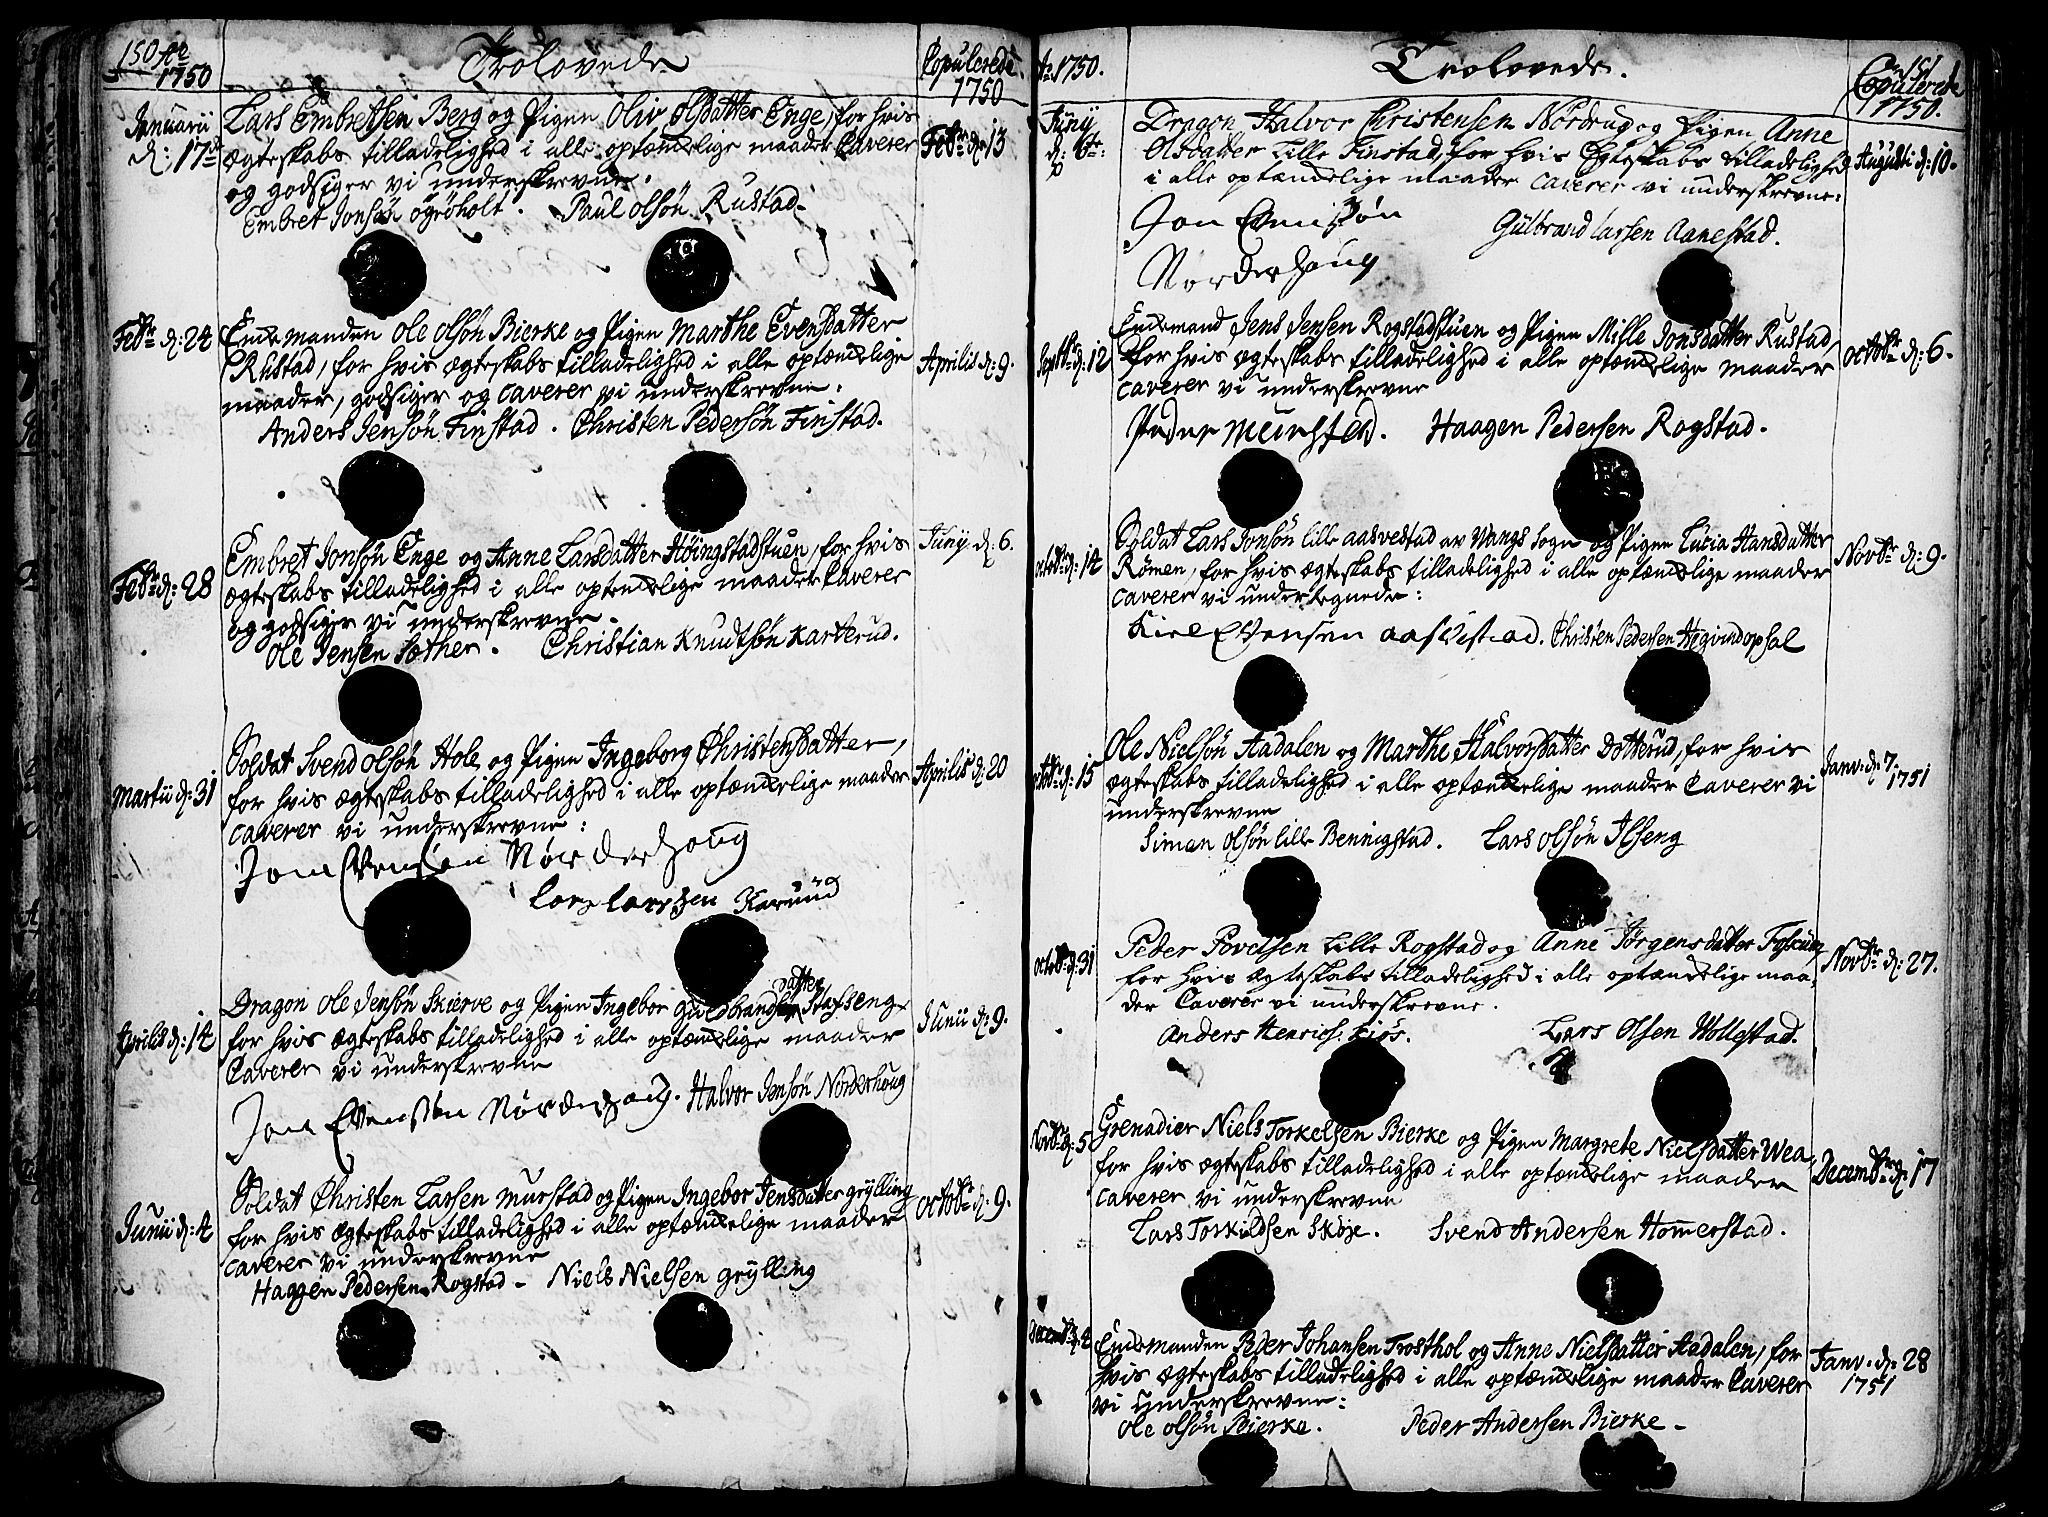 150 Ao 1750
Trolovede
Copulerede 1750
Januarii d: 17de
Lars Embretsen Berg og Pigen Oliv Olsdatter Enge, for hvis
ægteskabs tilladelighed i alle optænkelige maader Caverer
og godsiger vi underskrevne.
Embret Jonsøn Ogrøholt. Paul Olsøn Rustad.
Febr: d: 13
Febr: d: 24
Enkemanden Ole Olsøn Bierke og Pigen Marthe Evensdatter
Rustad, for hvis ægteskabs tilladelighed i alle optænkelige
maader, godsiger og caverer vi underskrevne.
Anders Jensøn Finstad. Christen Pedersøn Finstad.
Aprilis d: 9.
Febr: d: 28
Embret Jonsøn Enge og Anne Larsdatter Høingstadstuen, for hvis
ægteskabs tilladelighed i alle optænkelige maader Caverer
og godsiger vi underskrevne.
Ole Jensen Sæther. Christian Knudtsøn Karterud.
Juny d: 6.
Martii d: 31
Soldat Svend Olsøn Hole, og Pigen Ingeborg Christensdatter,
for hvis ægteskabs tilladelighed i alle optænkelige maader
caverer vi underskrevne:
Jon Evensen Norderhoug
Lars Larssen Karuud
Aprilis d: 20
Aprilis d: 14
datter
Dragon Ole Jensøn Skierve og Pigen Ingebor Guldbrands Stafseng
for hvis ægteskabs tilladelighed i alle optænkelige maader
Caverer vi underskrevne
Jon Evensøn Norderhoug. Halvor Jensøn Norderhoug
Junii d: 9.
Junii d: 4
Soldat Christen Larsen Murstad og Pigen Ingebor Jensdatter Grylling
for hvis ægteskabs tilladelighed i alle optænkelige maader
caverer vi underskrevne
Haagen Pedersen Rogstad. Niels Nielsen Grylling
Octobr: d: 9.
Ao 1750.
Trolovede.
151
Copulerede 1750.
Juny d: 6te:
Dragon Halvor Christensen Nordrug og Pigen Anne
Olsdatter Lille Finstad, for hvis Ægteskabs tilladelighed
i alle optændelige maader caverer vi underskrevne:
Jon Evensøn Gulbrand Larsen Aanestad.
Norderhoug
Augusti d: 10.
Septbr: d: 12
Enkemand Jens Jensen Rogstadstuen og Pigen Mille Jonsdatter Rustad,
for hvis ægteskabs tilladelighed i alle optænkelige maader
caverer vi underskrevne
Peder Murstad. Haagen Pedersen Rogstad.
Octobr: d: 6.
Octobr: d: 14
Soldat Lars Jonsøn lille Aasvedstad av Vangs Sogn og Pigen Lucia Hansdatter
Rømen, for hvis ægteskabs tilladelighed i alle optænkelige maader
caverer vi undertegnede:
Evensen Aasvestad. Christen Pedersen Hegvindopsal
Novbr: d: 9.
Octobr: d: 15
Ole Nielsøn Aadalen og Marthe Halvorsdatter Dotterud, for hvis
ægteskabs tilladelighed i alle optænkelige maader Caverer vi
underskrevne
Siman Olsøn lille Bennigstad. Lars Olsøn Ilseng
Janv. d: 7. 1751
Octob: d: 31
Peder Povelsen Lille Rogstad og Anne Jørgensdatter
for hvis Ægteskabs tilladelighed i alle optændelige maa-
der Caverer vi underskrevne.
Anders Henrichs: Kiøs. Lars Olsen Wollestad.
Novbr: d: 27.
Novbr: d: 5
Grenadier Niels Torkelsen Bierke og Pigen Margrete Nielsdatter Wea,
for hvis ægteskabs tilladelighed i alle optænkelige maader
caverer vi underskrevne
Lars Torkildsen Skøje. Svend Andersen Hommerstad.
Decembr: d: 17
Decemb: d: 4
Enkemanden Peder Johansen Frosthol og Anne Nielsdatter Aadalen, for
hvis ægteskabs tilladelighed i alle optænkelige maader Caverer
vi underskrevne:
Ole Olsøn Bierke. Peder Andersen Bierke.
Janv. d: 28
1751